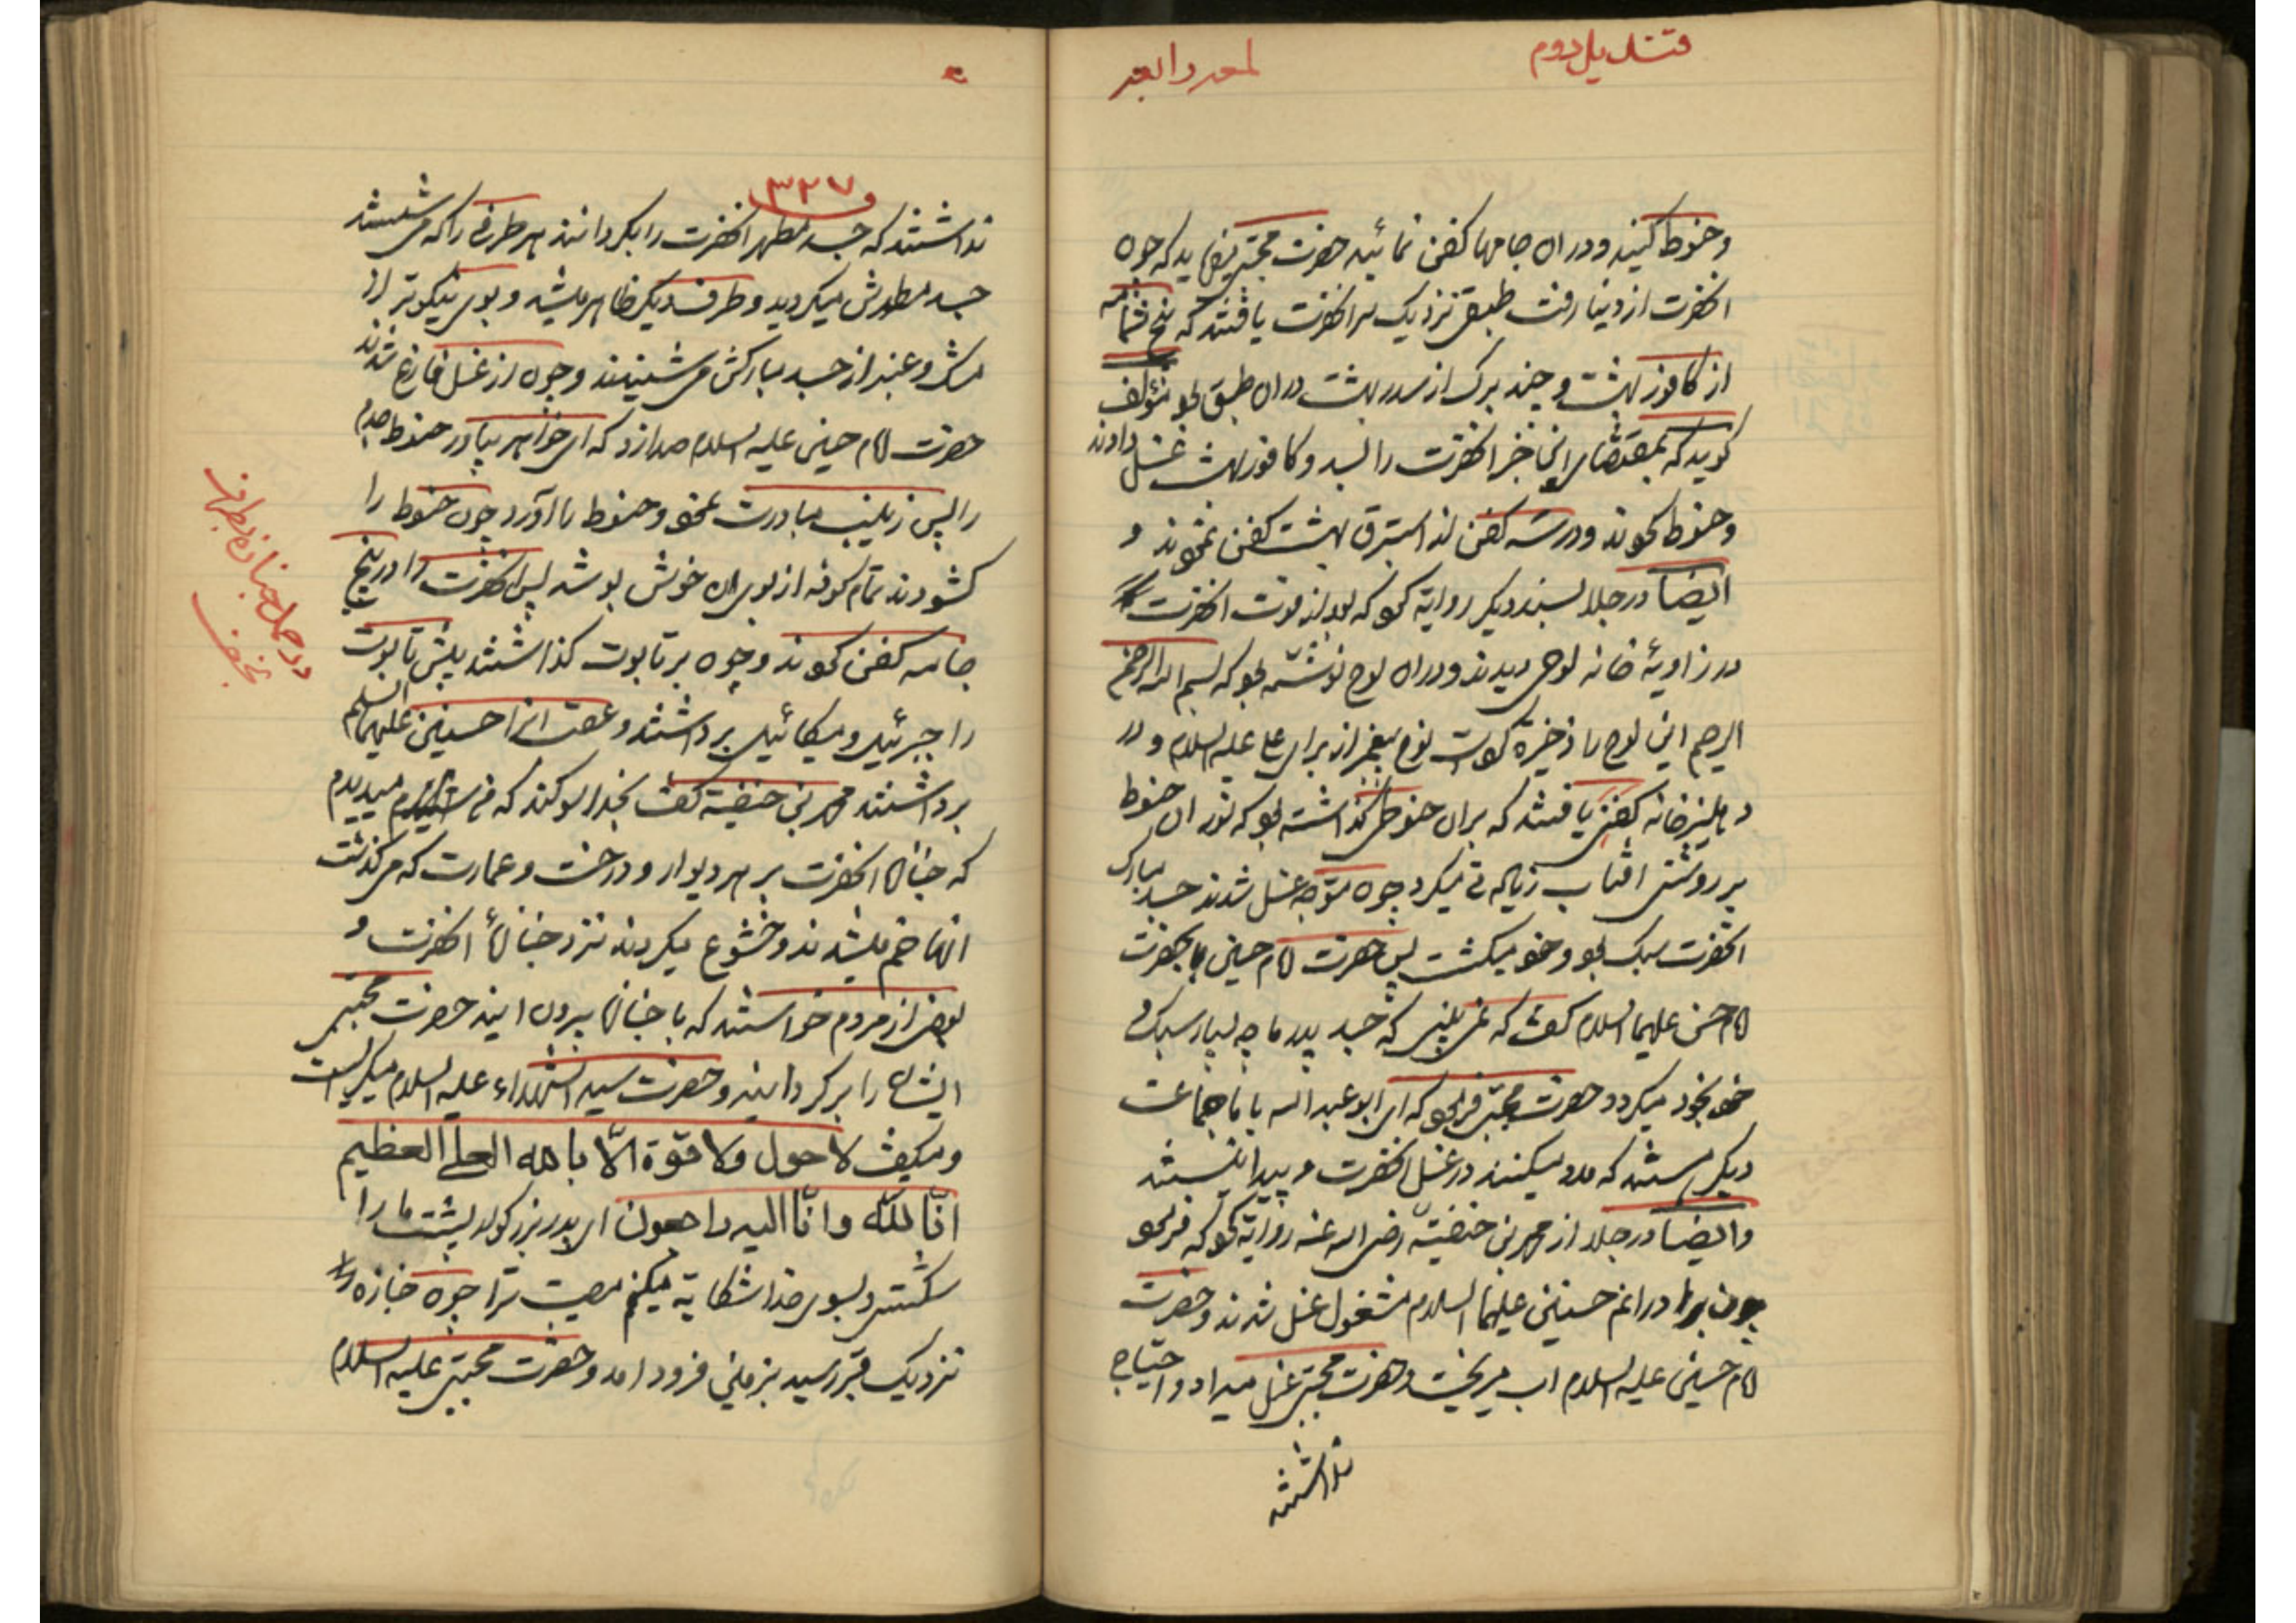 قندیل دوم
لمعه رابعه
وحنوط کنید ودر ان جامها کفن نمائید حضرت مجتبی میفرماید که چون
انحضرت از دنیا رفت طبقی نزدیک سر انحضرت یافتند که پنج شمامه
از کافور بهشت وچند برک از سدر بهشت در ان طبق بود مؤلف
کوید که بمقتضای این خبر انحضرت را بسدر وکافور بهشت غسل دادند
وحنوط کردند ودر سه کفن از استبرق بهشت کفن نمودند و
ایضا در جلا بسند دیکر روایة کرد که بعد از فوت انحضرت
در زاویهٔ خانه لوحی دیدند ودر ان لوح نوشته بود که بسم الله الرحمن
الرحیم این لوح را ذخیره کرده است نوح پیغمبر از برای علی علیه السلام و در
دهلیز خانه کفنی یافتند که بران حنوطی کذاشته بود که نور ان حنوط
بر روشنی افتاب زیادتی میکرد چون متوجه غسل شدند جسد مبارک
انحضرت سبک بود وخود میکشت پس حضرت امام حسین با حضرت
امام حسن علیهما السلام کفت که نمی بینی که جسد پدر ما چه بسیار سبک و
خود بخود میکردد حضرت مجتبی فرمود که ای ابو عبد الله با ما جماعت
دیکر هستند که مدد میکنند در غسل انحضرت و پیدا نیستند
وایضا در جلا از محمد بن حنفیّه رضی الله عنه روایة کرد که فرمود
چون برادرانم حسنین علیهما السلام مشغول غسل شدند وحضرت
امام حسین علیه السلام اب میریخت وحضرت مجتبی غسل میداد و احتیاج
نداشتند
۳۲۷
نداشتند که جسد مطهر انحضرت را بکردانند هر طرفی را که می شستند
جسد مطهرش میکردید وطرف دیکر ظاهر میشد و بوی نیکوتر از
مشک وعنبر از جسد مبارکش می شنیدند وچون از غسل فارغ شدند
حضرت امام حسین علیه السلام صدا زد که ای خواهر بیاور حنوط جدم
را پس زینب مبادرت نمود وحنوط را آورد چون حنوط را
کشودند تمام کوفه از بوی ان خوش بو شد پس انحضرت را در پنج
جامه کفن کردند وچون بر تابوت کذاشتند پیش تابوت
را جبرئیل ومیکائیل برداشتند وعقب انرا حسنین علیهما السلم
برداشتند محمد بن حنفیة کفت بخدا سوکند که من میدیدم
که جنازه انحضرت بر هر دیوار ودرخت وعمارت که می کذشت
انها خم میشدند وخشوع میکردند نزد جنازهٔ انحضرت و
بعضی از مردم خواستند که با جنازه بیرون ایند حضرت مجتبی
ایشان را برکردانید وحضرت سید الشهداء علیه السلام میکریست
ومیکفت لا حول ولا قوّة الّا بالله العلی العظیم
انّا لله وانّا الیه راجعون ای پدر بزرکوار پشت ما را
شکستی وبسوی خدا شکایة میکنم مصیبت ترا چون جنازه را
نزدیک قبر رسید بزمین فرود امد وحضرت مجتبی علیه السلام
در حمل جنازه مطهر
نجف